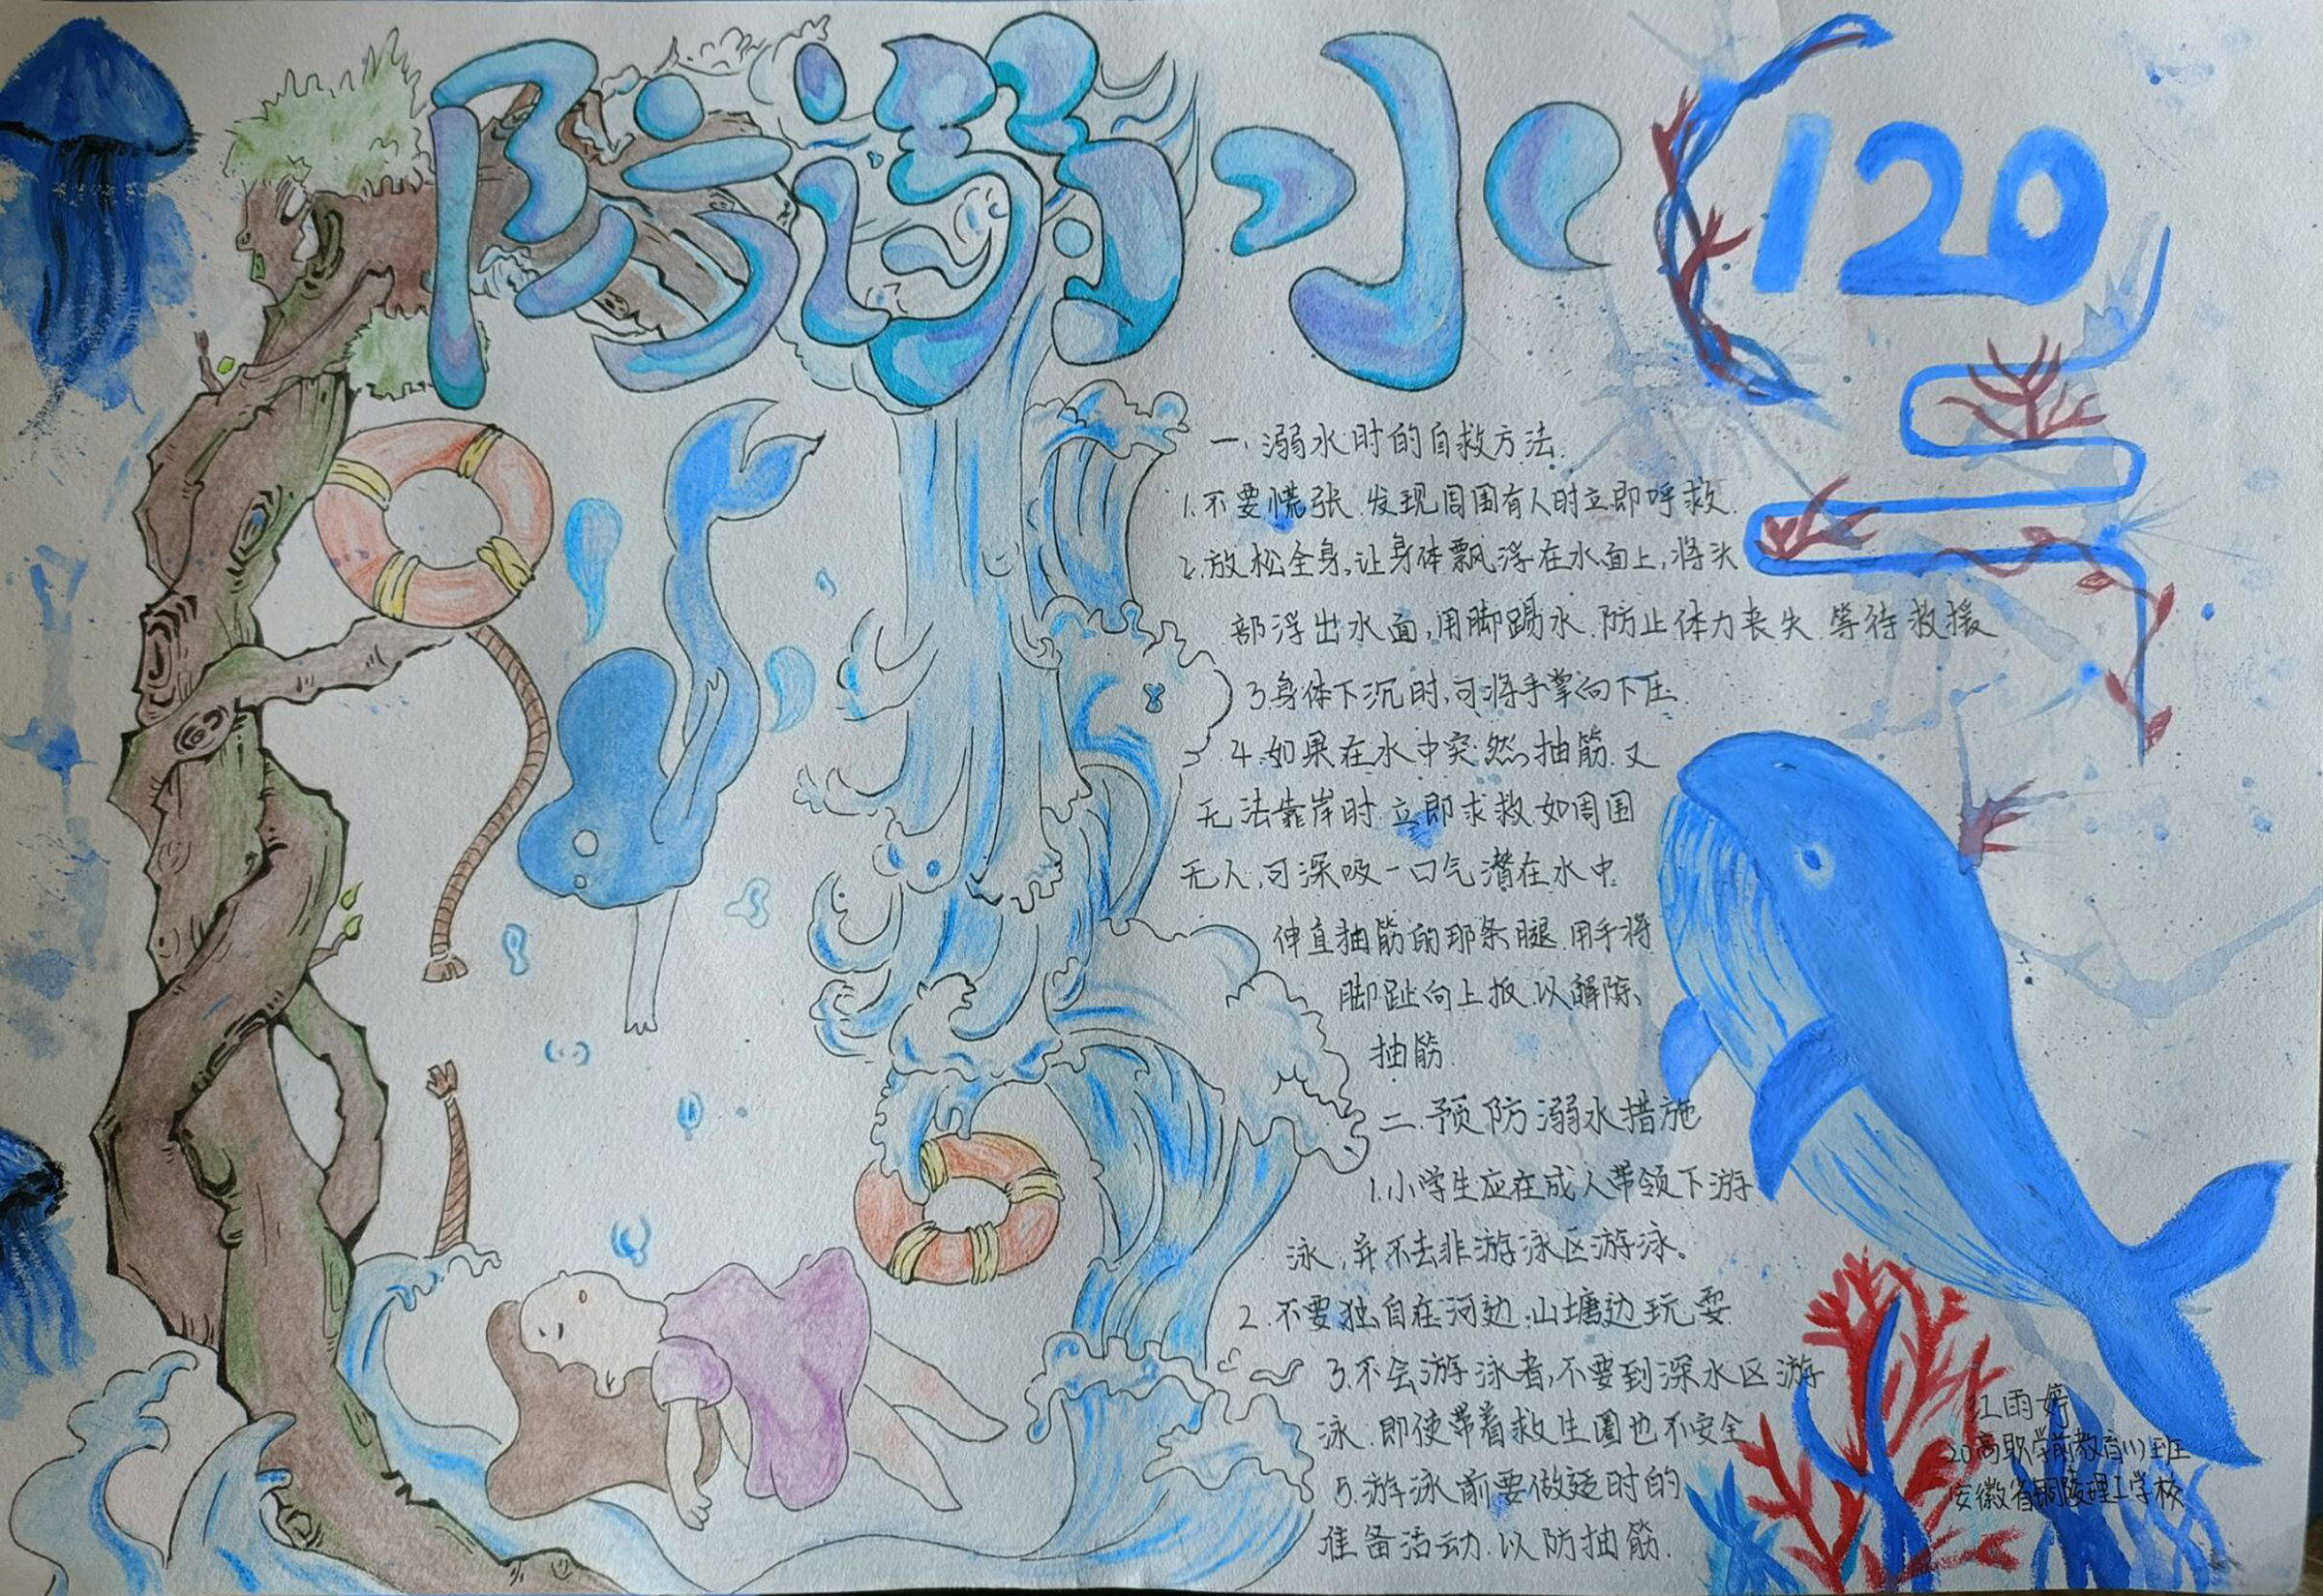 防溺水
120
一、溺水时的自救方法.
1.不要慌张.发现周围有人时立即呼救.
2.放松全身,让身体飘浮在水面上,将头
部浮出水面,用脚踢水.防止体力丧失.等待救援
3.身体下沉时,可将手掌向下压.
4.如果在水中突然抽筋.又
无法靠岸时.立即求救.如周围
无人,可深吸一口气潜在水中.
伸直抽筋的那条腿.用手将
脚趾向上扳.以解除
抽筋.
二.预防溺水措施
1.小学生应在成人带领下游
泳,并不去非游泳区游泳。
2.不要独自在河边.山塘边玩耍.
3.不会游泳者,不要到深水区游
泳.即使带着救生圈也不安全
5.游泳前要做适时的
准备活动.以防抽筋.
江雨婷
20高职学前教育(1)班
安徽省铜陵理工学校